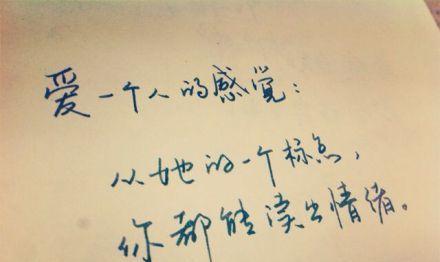 爱一个人的感觉:
从她的一个标点,
你都能读出情绪。